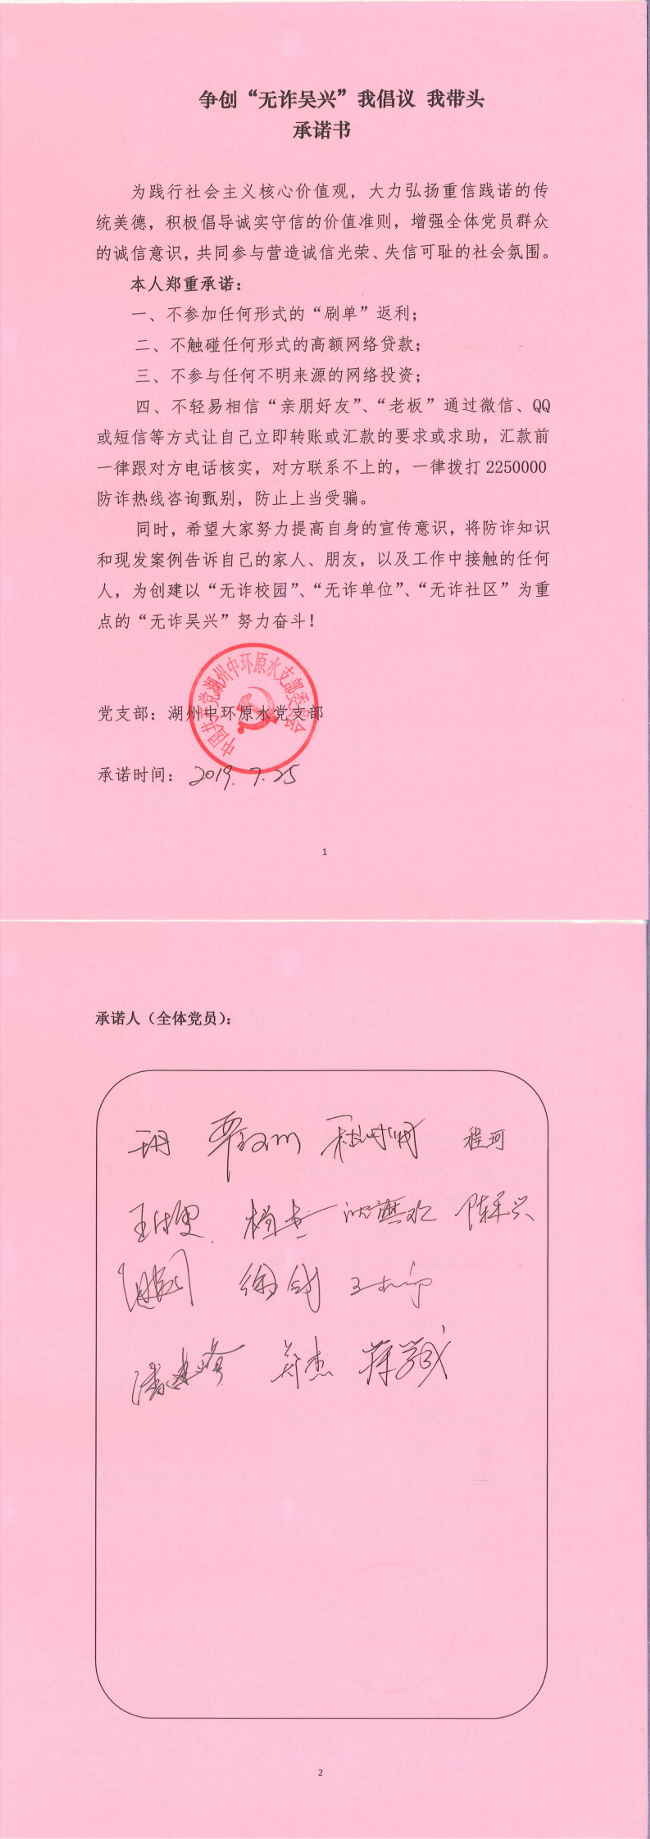 争创“无诈吴兴”我倡议 我带头
承诺书
为践行社会主义核心价值观，大力弘扬重信践诺的传
统美德，积极倡导诚实守信的价值准则，增强全体党员群众
的诚信意识，共同参与营造诚信光荣、失信可耻的社会氛围。
本人郑重承诺：
一、不参加任何形式的“刷单”返利；
二、不触碰任何形式的高额网络贷款；
三、不参与任何不明来源的网络投资；
四、不轻易相信“亲朋好友”、“老板”通过微信、QQ
或短信等方式让自己立即转账或汇款的要求或求助，汇款前
一律跟对方电话核实，对方联系不上的，一律拨打 2250000
防诈热线咨询甄别，防止上当受骗。
同时，希望大家努力提高自身的宣传意识，将防诈知识
和现发案例告诉自己的家人、朋友，以及工作中接触的任何
人，为创建以“无诈校园”、“无诈单位”、“无诈社区”为重
点的“无诈吴兴”努力奋斗！
中国共产党湖州中环原水支部委员会
党支部：湖州中环原水党支部
承诺时间：2019.7.25
1
承诺人（全体党员）：
程珂
陈平兴
潘建峰 郑杰
2